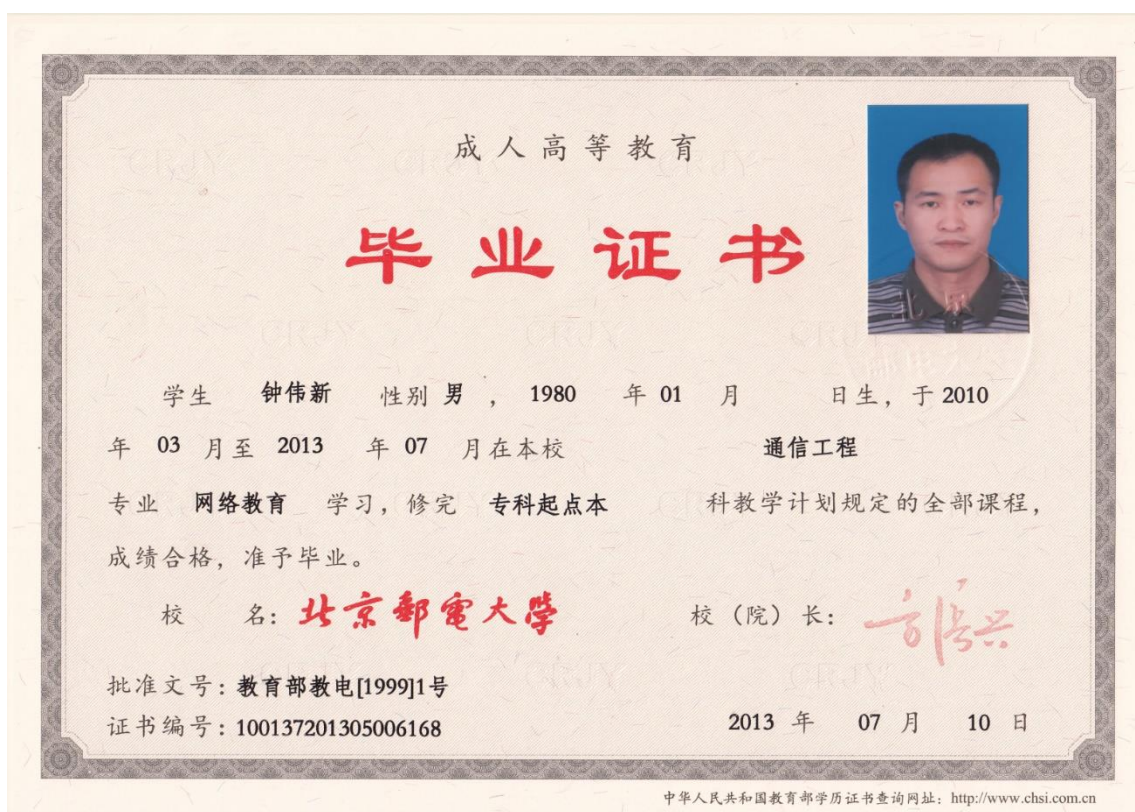 成人高等教育
毕业证书
学生 钟伟新 性别 男 ， 1980 年 01 月 日生，于 2010
年 03 月至 2013 年 07 月在本校 通信工程
专业 网络教育 学习，修完 专科起点本 科教学计划规定的全部课程，
成绩合格，准予毕业。
校 名：北京郵電大學 校（院）长：
批准文号：教育部教电[1999]1号
证书编号：100137201305006168 2013 年 07 月 10 日
中华人民共和国教育部学历证书查询网址：http://www.chsi.com.cn